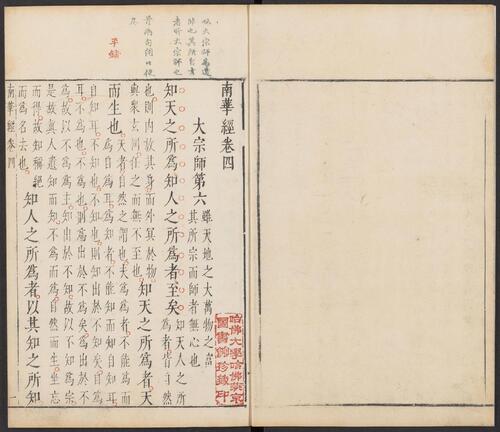 南華經卷四
大宗師第六
雖天地之大萬物之富
其所宗而師者無心也
知天之所爲知人之所爲者至矣
知天人之所
爲者皆自然
也則內放其身而外冥於物
與衆玄同任之而無不至也
知天之所爲者天
而生也
天者自然之謂也夫爲爲者不能爲而
爲自爲耳爲知者不能知而知自知耳
自知耳不知也不知也則知出於不知矣自爲
耳不爲也不爲也則爲出於不爲矣爲出於不
爲故以不爲爲主知出於不知故以不知爲宗
是故真人遺知而知不爲而爲自然而生坐忘
而得故知稱絕
而爲名去也
知人之所爲者以其知之所知
南華經卷四
一
哈佛大學哈佛燕京
圖書館珍藏印